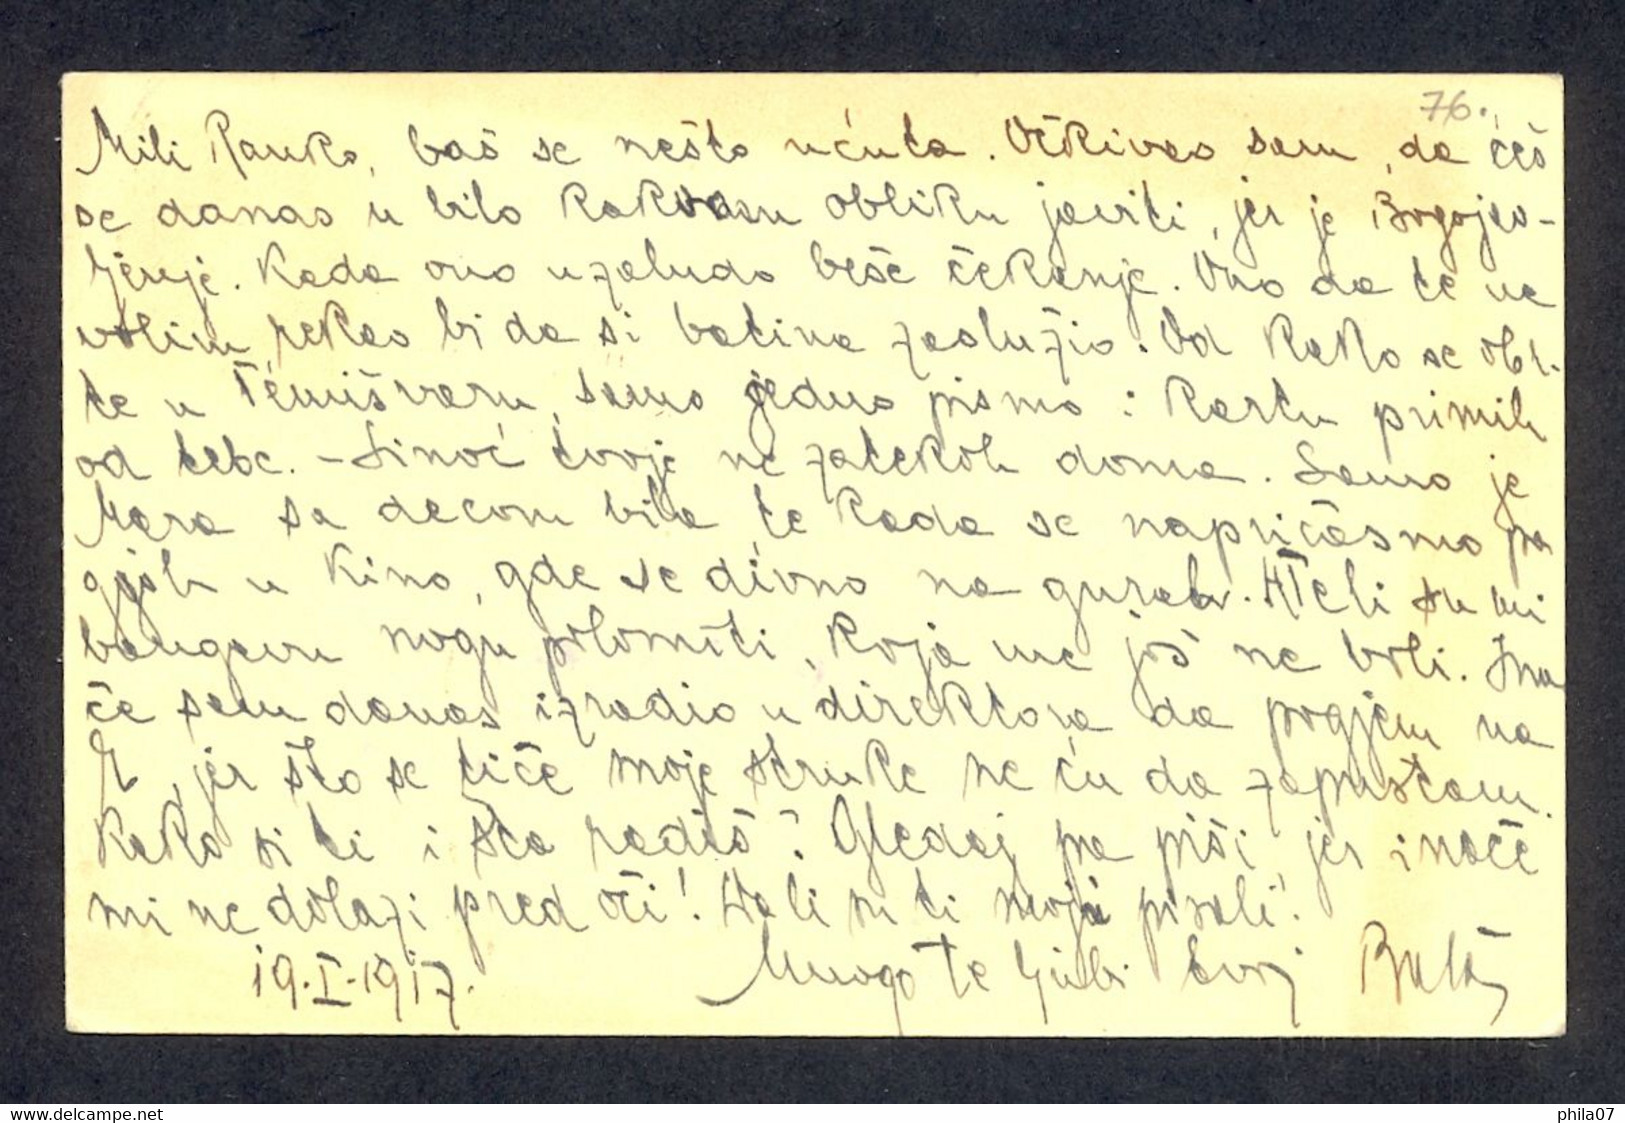 76.
Mili Ranko, baš se nešto ućuta. Očkivao sam, da ćeš
se danas u bilo kakvom obliku javiti, jer je Bogojav-
ljenje. Kada ono uzaludo beše čekanje. Ono da te ne
volim, rekao bi da si batina zaslužio. Od kako se obi-
te u Temišvaru, samo jedno pismo i kartu primih
od tebe. - Sinoć tvoje ne zatekoh doma. Samo je
Mara sa decom bila te kada se napričasmo po
gjoh u kino, gde se divno na gurah. Hteli su mi
nogu polomiti, koja me još ne boli. Ina
če sam danas izradio u direktora da pogjem na
jer što se tiče moje struke ne ću da zapustam.
Kako si ti i šta radiš? Gledaj pa piši, jer inače
mi ne dolazi pred oči! Dali su ti moji pisali!
19.I.1917. Mnogo te ljubi tvoj
www.delcampe.net
phila07